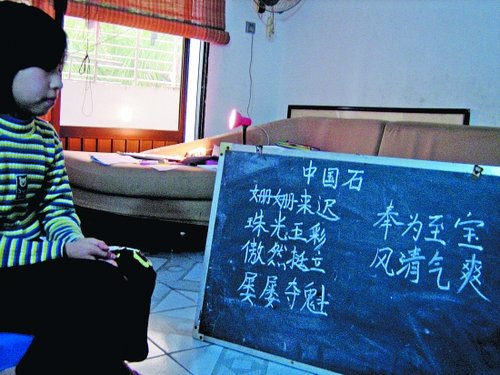 中国石
姗姗来迟
珠光玉彩
傲然挺立
屡屡夺魁
奉为至宝
风清气爽